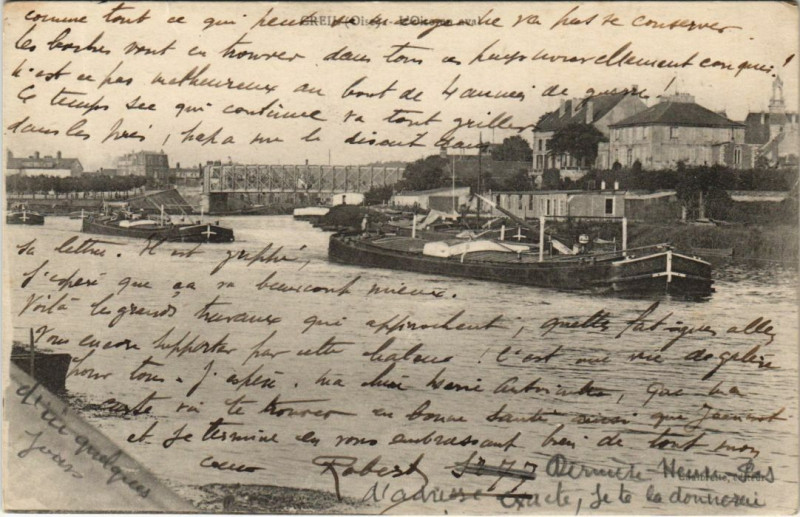 comme tout ce qui peut se manger ne va pas se conserver.
CREIL (Oise) - L'Oise en aval
les boches vont en trouver dans tous ces pays nouvellement conquis!
n'est ce pas malheureux au bout de 4 années de guerre!
Ce temps sec qui continue va tout griller
dans les prés, papa me le disait dans
sa lettre. Il est grippé,
j'espère que ça va beaucoup mieux.
Voilà les grands travaux qui approchent, quelles fatigues allez
vous encore supporter par cette chaleur! C'est une vie de galère
pour tous. J'espère ma chère Antoinette, que ma
carte va te trouver en bonne santé ainsi que
et je termine en vous embrassant bien de tout mon
cœur Robert
Dernière Heure - Pas
d'adresse exacte, je te la donnerai
d'ici quelques
jours